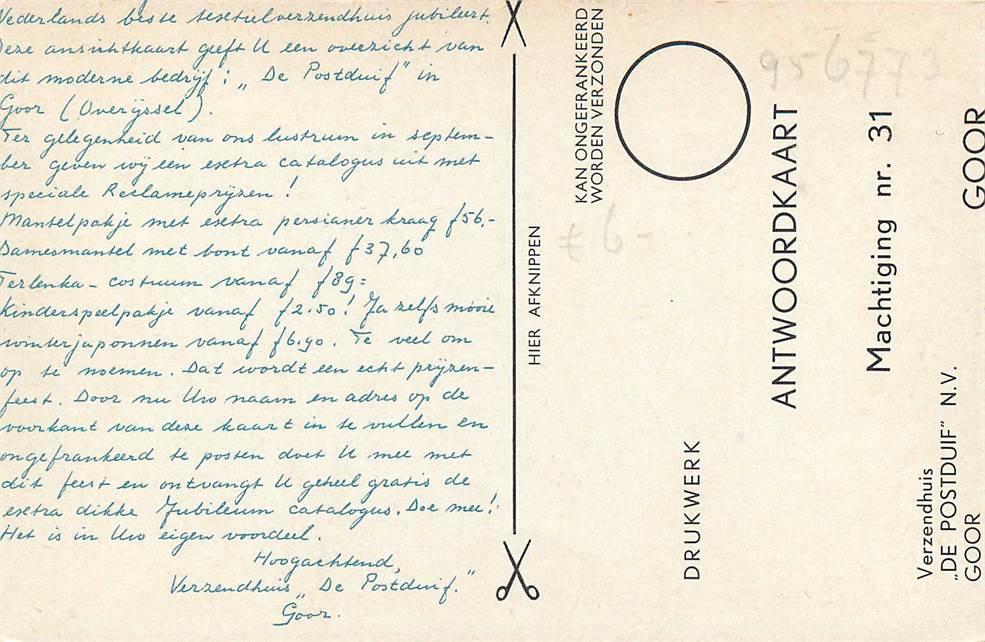 Nederlands beste textielverzendhuis jubileert.
Deze ansichtkaart geeft U een overzicht van
dit moderne bedrijf: „De Postduif" in
Goor (Overijssel).
Ter gelegenheid van ons lustrum in septem-
ber geven wij een extra catalogus uit met
speciale Reclameprijzen!
Mantelpakje met extra persianer kraag f56.-
Damesmantel met bont vanaf f37,60
Terlenka-costuum vanaf f89=
Kinderspeelpakje vanaf f2.50! Ja zelfs mooie
winterjaponnen vanaf f6.90. Te veel om
op te noemen. Dat wordt een echt prijzen-
feest. Door nu Uw naam en adres op de
voorkant van deze kaart in te vullen en
ongefrankeerd te posten doet U mee met
dit feest en ontvangt U geheel gratis de
extra dikke Jubileum catalogus. Doe mee!
Het is in Uw eigen voordeel.
Hoogachtend,
Verzendhuis „De Postduif."
Goor.
HIER AFKNIPPEN
KAN ONGEFRANKEERD
WORDEN VERZONDEN
6-
DRUKWERK
956773
ANTWOORDKAART
Machtiging nr. 31
Verzendhuis
„DE POSTDUIF" N.V.
GOOR
GOOR